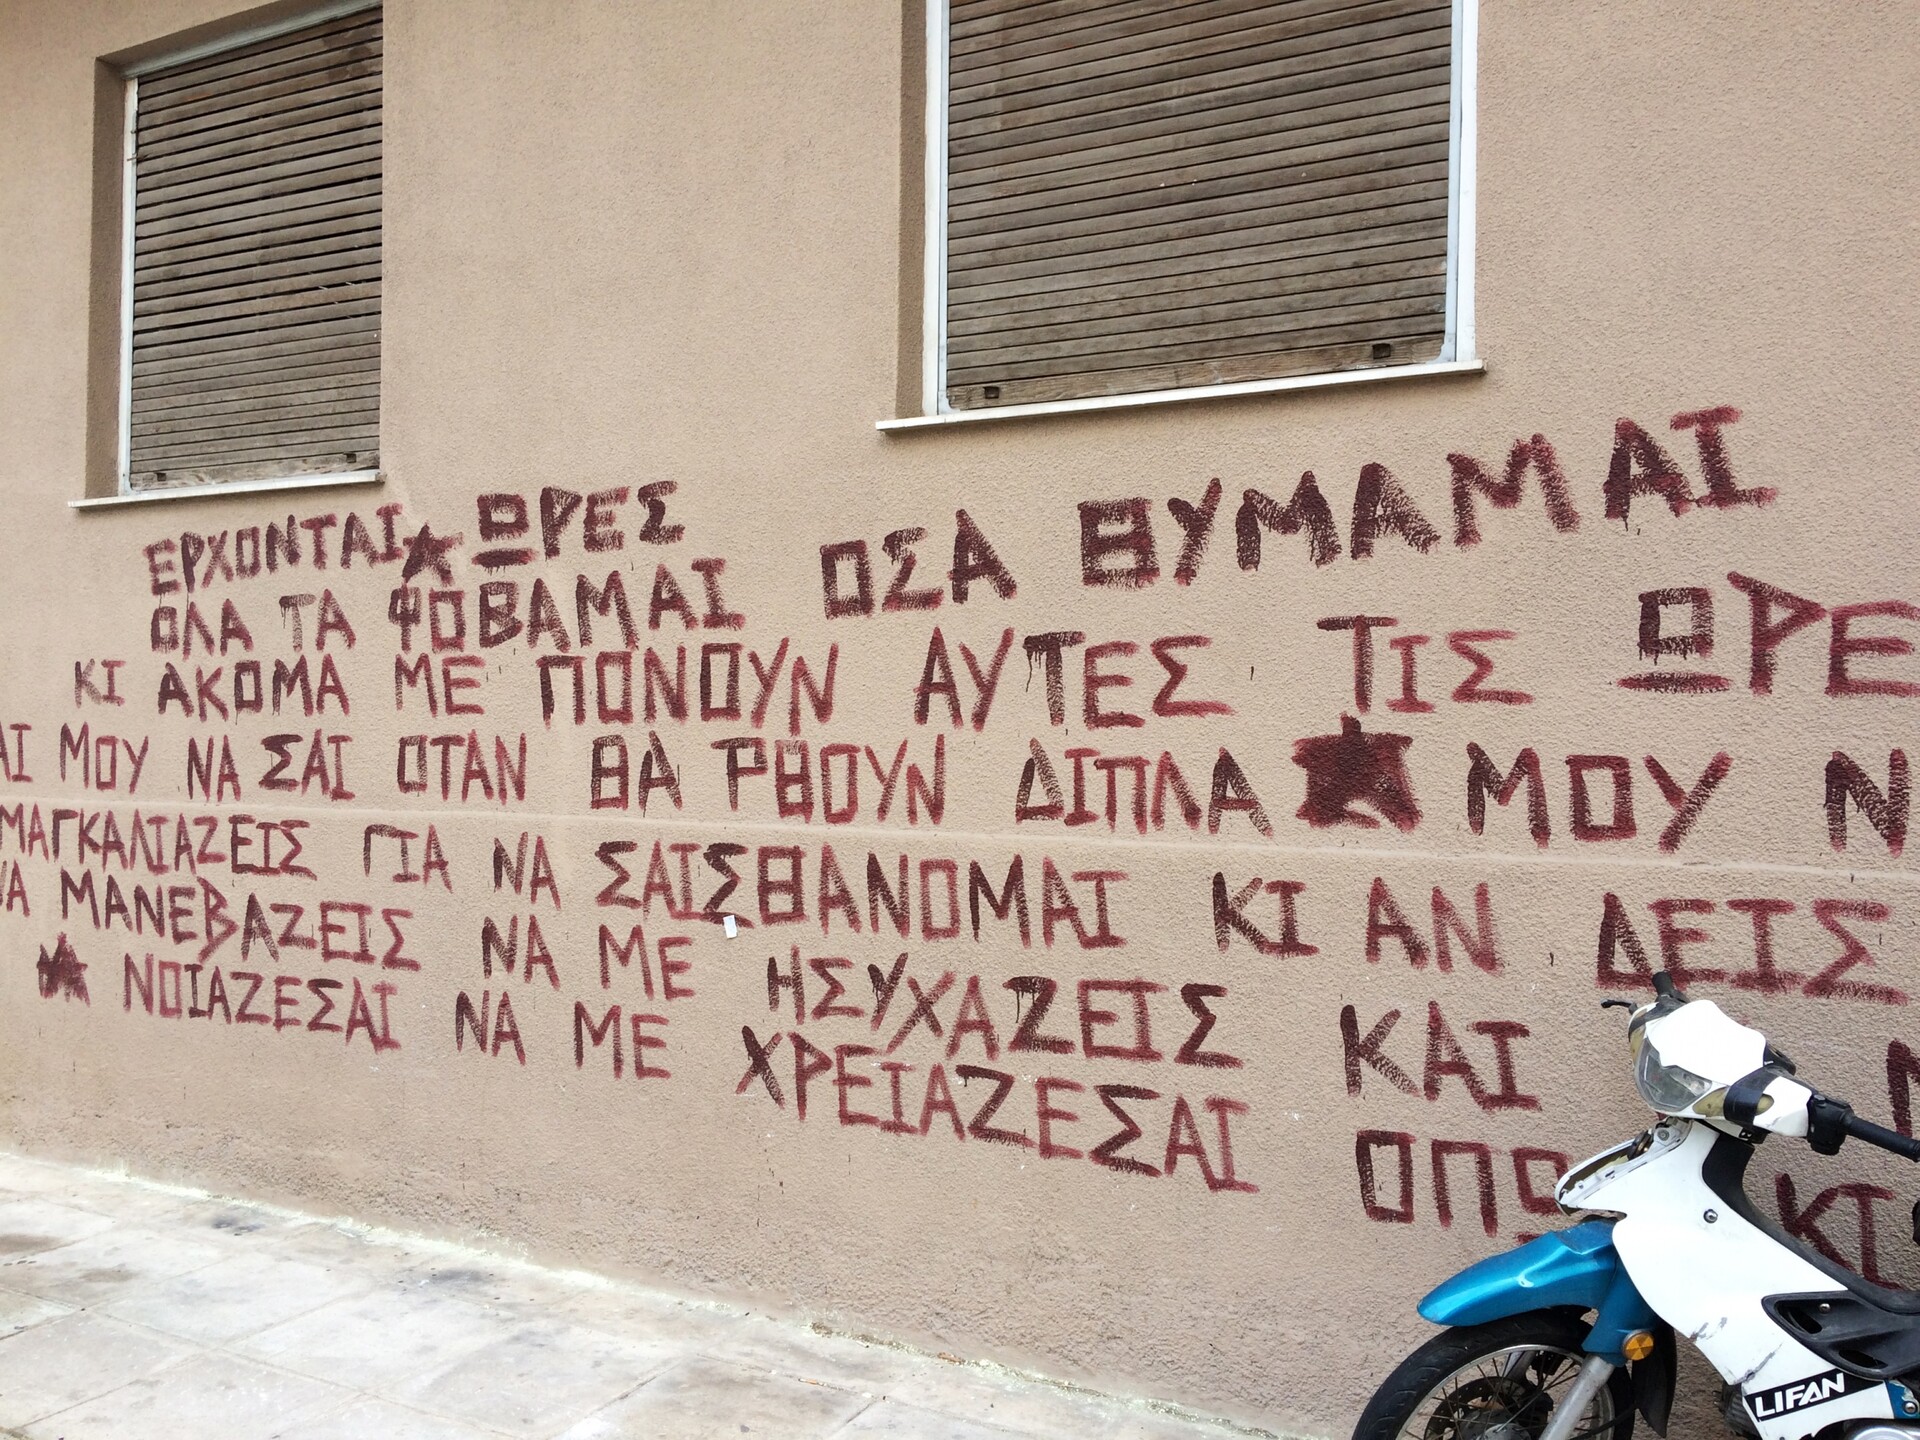 ΕΡΧΟΝΤΑΙ ΩΡΕΣ ΟΣΑ ΘΥΜΑΜΑΙ
ΟΛΑ ΤΑ ΦΟΒΑΜΑΙ
ΚΙ ΑΚΟΜΑ ΜΕ ΠΟΝΟΥΝ ΑΥΤΕΣ ΤΙΣ ΩΡΕ
ΑΙ ΜΟΥ ΝΑ ΣΑΙ ΟΤΑΝ ΘΑ ΡΘΟΥΝ ΔΙΠΛΑ ΜΟΥ Ν
ΜΑΓΚΑΛΙΑΖΕΙΣ ΓΙΑ ΝΑ ΣΑΙΣΘΑΝΟΜΑΙ ΚΙ ΑΝ ΔΕΙΣ
ΝΑ ΜΑΝΕΒΑΖΕΙΣ ΝΑ ΜΕ ΗΣΥΧΑΖΕΙΣ ΚΑΙ
ΝΟΙΑΖΕΣΑΙ ΝΑ ΜΕ ΧΡΕΙΑΖΕΣΑΙ ΟΠΩ ΚΙ
LIFAN